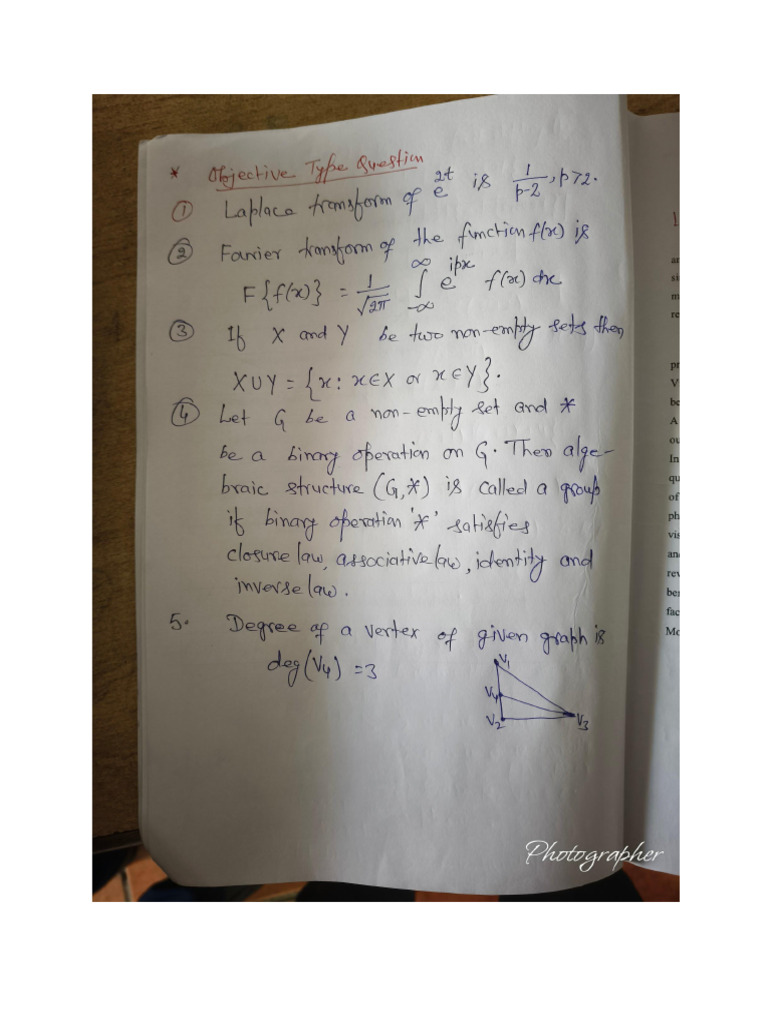 * Objective Type Question
① Laplace transform of e^{2t} is 1/(p-2), p>2.
② Fourier transform of the function f(x) is
F{f(x)} = 1/√2π ∫_{-∞}^{∞} e^{ipx} f(x) dx
③ If X and Y be two non-empty sets then,
X∪Y = {x: x∈X or x∈Y}.
④ Let G be a non-empty set and *
be a binary operation on G. Then alge-
braic structure (G,*) is called a group
if binary operation '*' satisfies
closure law, associative law, identity and
inverse law.
5. Degree of a vertex of given graph is
deg(V4) = 3
V1
V4
V2
V3
an
si
m
re
pr
V
be
A
ou
In
qu
of
ph
vis
an
rev
ber
fac
Mo
Photographer